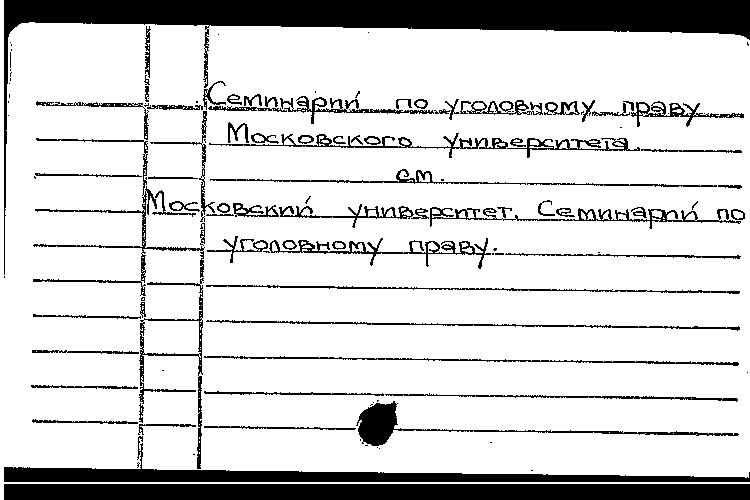 Семинарий по уголовному праву
Московского университета
см.
Московский университет. Семинарий по
уголовному праву.